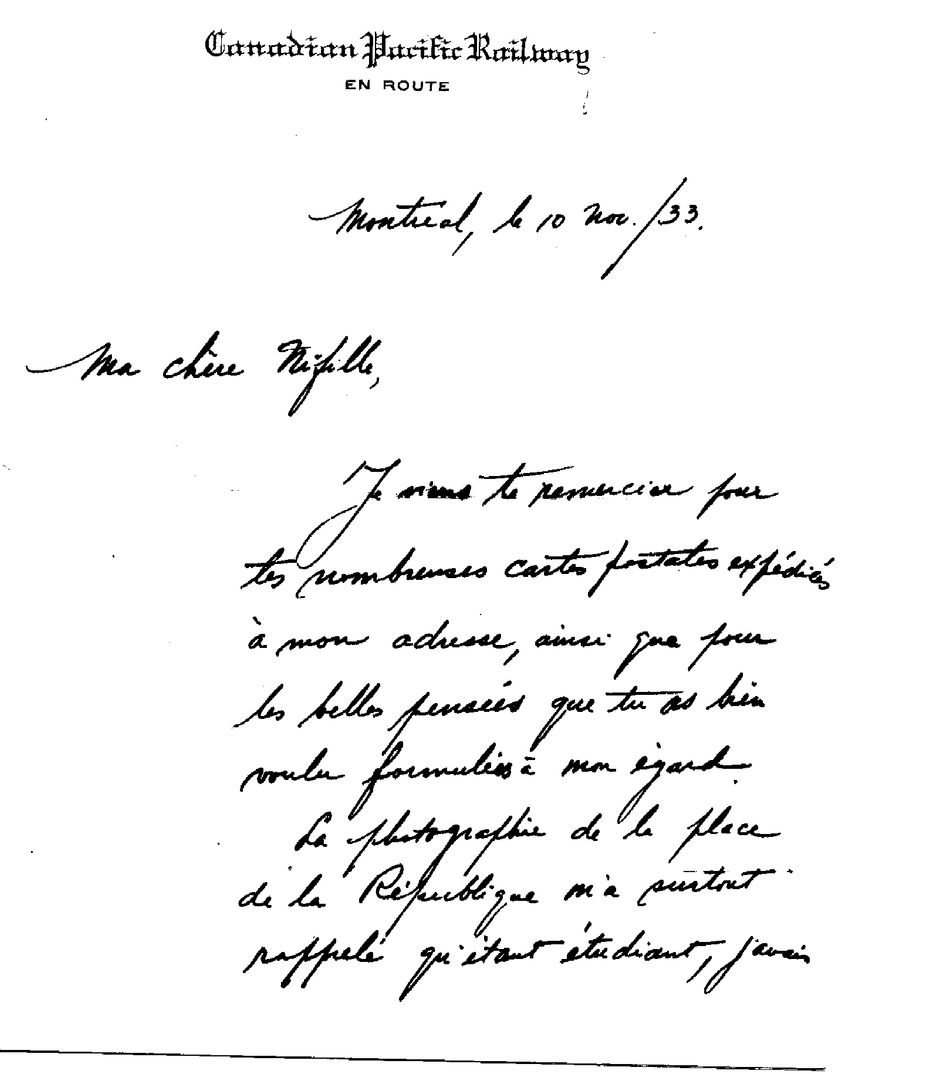 Canadian Pacific Railway
EN ROUTE
Montreal, le 10 Nov. /33.
Ma chère Nifille,
Je viens te remercier pour
tes nombreuses cartes postales expédiées
à mon adresse, ainsi que pour
les belles pensées que tu as bien
voulu formulées à mon égard.
La photographie de la place
de la République m'a surtout
rappelé qu'étant étudiant, j'avais